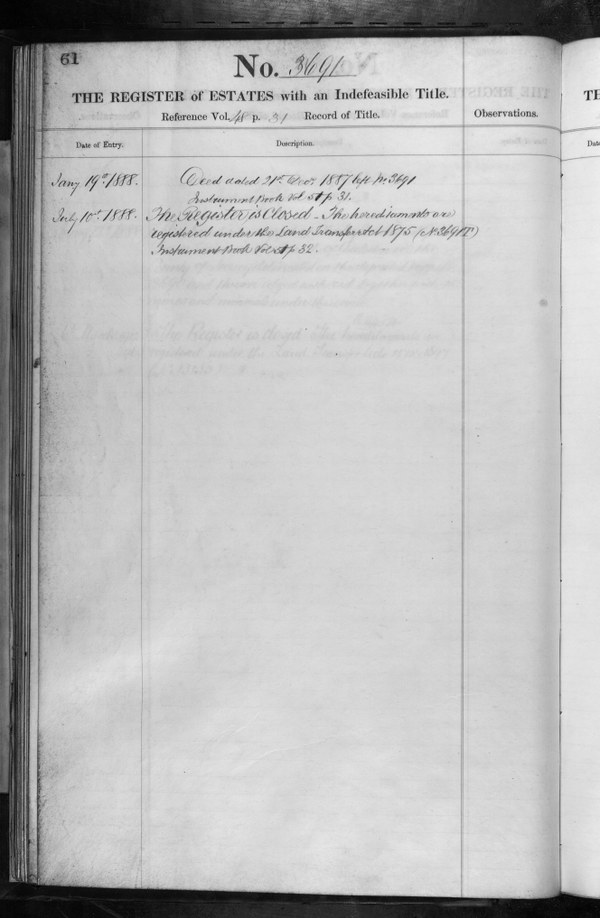 61
No. 3691
THE REGISTER of ESTATES with an Indefeasible Title.
Reference Vol. 48 p. 31 Record of Title.
Observations.
Date of Entry.
Description.
Jany 19th 1888.
Deed dated 21st Decr 1887 No. 3691
Instrument Book Vol 51 p 31.
July 10th 1888.
The Register is Closed - The hereditaments are
registered under the Land Transfer Act 1875 (No 3691T)
Instrument Book Vol 51 p 32.
TH
Dat